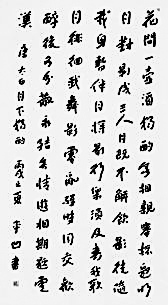 花間一壺酒獨酌無相親舉杯邀明
月對影成三人月既不解飲影徒隨
我身暫伴月將影行樂須及春我歌
月徘徊我舞影零亂醒時同交歡
醉後各分散永結無情遊相期邈雲
漢 唐李白月下獨酌